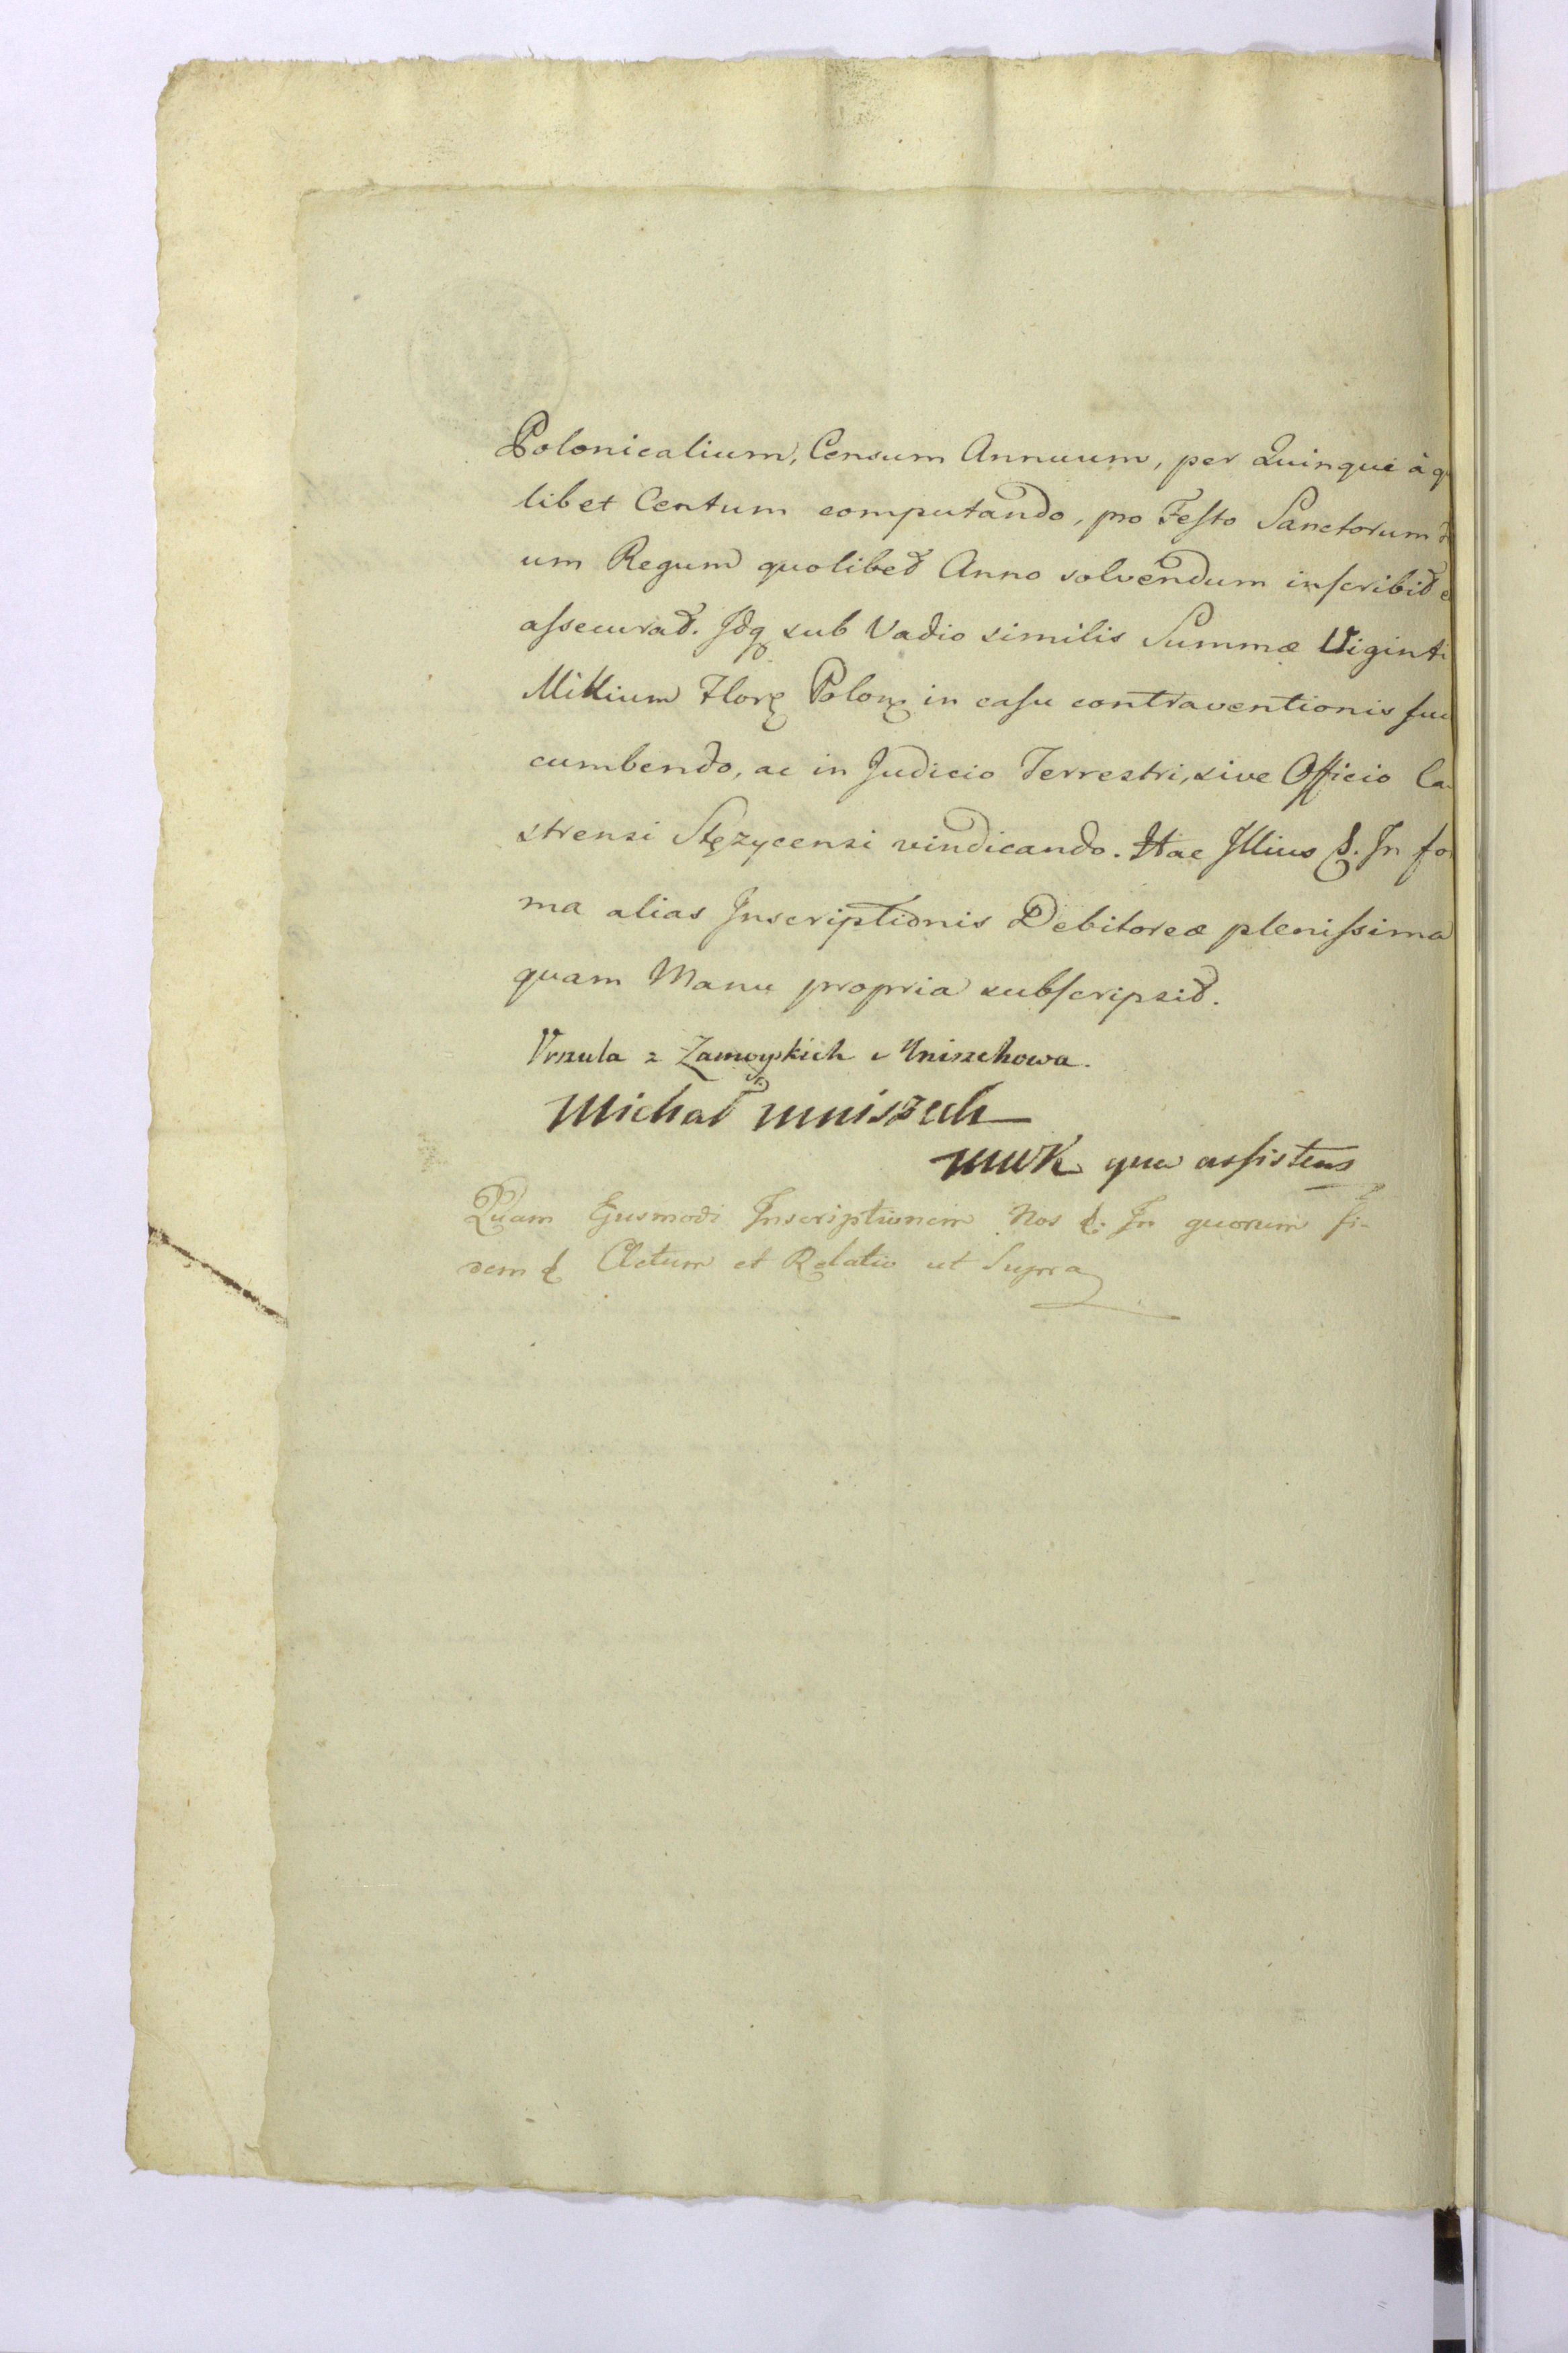 Polonicalium, Censum Annuum, per Quinque à q
libet Centum computando, pro Festo Sanctorum
um Regum quolibet Anno solvendum inscribit e
assecurat. Idq sub Vadio similis Summæ Viginti
Millium Flor Polon in casu contraventionis suc
cumbendo, ac in Judicio Terrestri, sive Officio Ca-
strensi Stęzycensi vindicando. Hac Illius &. In for
ma alias Inscriptionis Debitoreæ plenissima
quam Manu propria subscripsit.
Urszula z Zamoyskich Mniszchowa.
Michał Mniszech
MWK qua assistens
Quam Ejusmodi Inscriptionem Nos &. In quorum fi-
dem & Actum et Relatio ut Supra